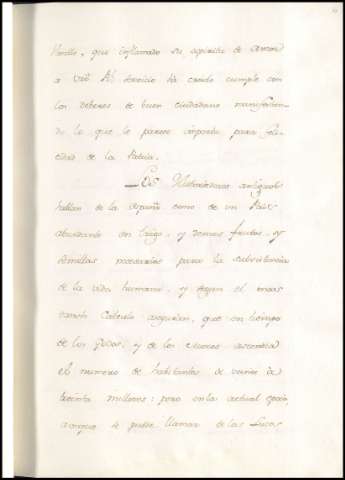 que inflamado su espiritu de Amor
a Vtro Rl. Servicio ha creido cumple con
los deberes de buen ciudadano manifestan-
do lo que le parece importa para feli-
cidad de la Patria.
Los Historiadores antiguos
hablan de la España como de un Pais
abundante en trigo, y demas frutos, y
semillas necesarias para la subsistencia
de la vida humana, y segun el mas
Calculo aseguran, que en tiempo
de los Godos, y de los ascendia
el numero de habitantes de veinte a
treinta millones: pero en la actual epoca,
aunque se puede llamar de las Luces